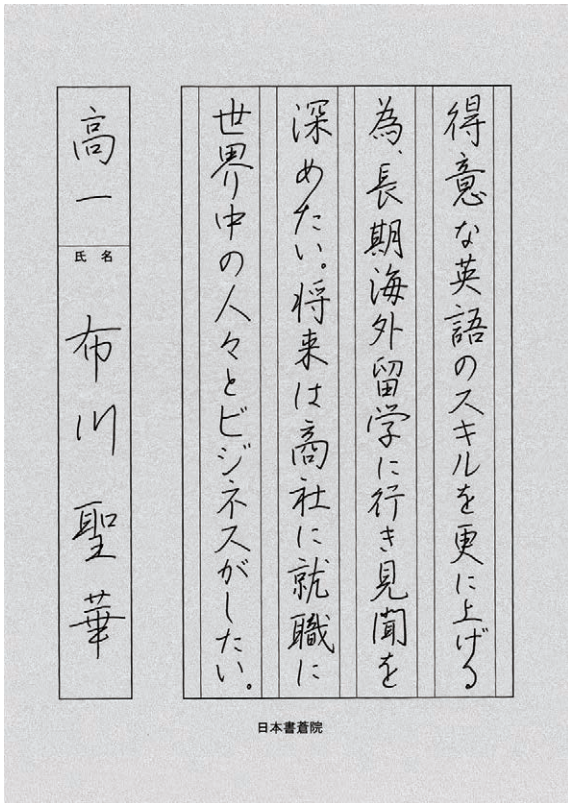 得意な英語のスキルを更に上げる
為、長期海外留学に行き見聞を
深めたい。将来は商社に就職に
世界中の人々とビジネスがしたい。
高一
氏名
布川聖華
日本書蒼院